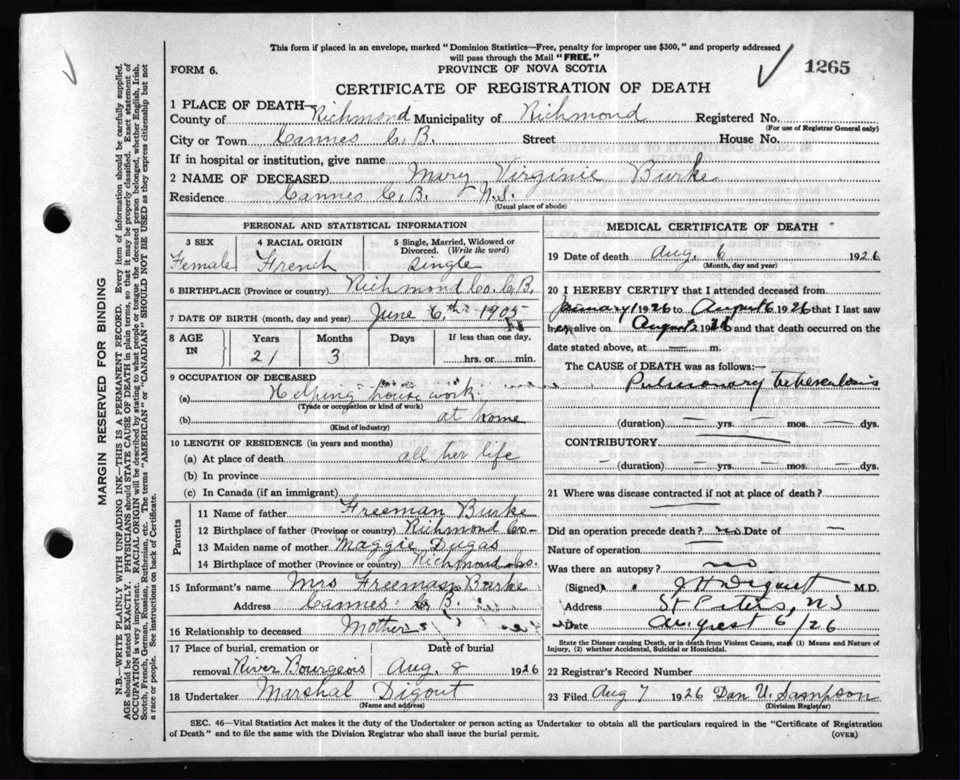 This form if placed in an envelope, marked "Dominion Statistics—Free, penalty for improper use $300," and properly addressed
will pass through the Mail "FREE."
FORM 6.
PROVINCE OF NOVA SCOTIA
1265
CERTIFICATE OF REGISTRATION OF DEATH
1 PLACE OF DEATH—
County of Richmond Municipality of Richmond Registered No.
(For use of Registrar General only)
City or Town Cannes C.B. Street House No.
If in hospital or institution, give name
2 NAME OF DECEASED Mary Virginie Burke
Residence Cannes C.B. N.S.
(Usual place of abode)
PERSONAL AND STATISTICAL INFORMATION
3 SEX 4 RACIAL ORIGIN 5 Single, Married, Widowed or
Divorced. (Write the word)
Female French Single
6 BIRTHPLACE (Province or country) Richmond Co. C.B.
7 DATE OF BIRTH (month, day and year) June 6th 1905
8 AGE IN Years Months Days If less than one day,
21 3 hrs. or min.
9 OCCUPATION OF DECEASED
(a) Helping house work
(Trade or occupation or kind of work)
(b) at home
(Kind of industry)
10 LENGTH OF RESIDENCE (in years and months)
(a) At place of death all her life
(b) In province
(c) In Canada (if an immigrant)
Parents
11 Name of father Freeman Burke
12 Birthplace of father (Province or country) Richmond Co—
13 Maiden name of mother Maggie Dugas
14 Birthplace of mother (Province or country) Richmond Co.
15 Informant's name Mrs Freeman Burke
Address Cannes C.B.
16 Relationship to deceased Mother
17 Place of burial, cremation or Date of burial
removal River Bourgeois Aug. 8 1926
18 Undertaker Marshal Digout
(Name and address)
MEDICAL CERTIFICATE OF DEATH
19 Date of death Aug. 6 1926
(Month, day and year)
20 I HEREBY CERTIFY that I attended deceased from
January 1 1926 to August 6 1926 that I last saw
her alive on August 2 1926 and that death occurred on the
date stated above, at — m.
The CAUSE of DEATH was as follows:—
Pulmonary tuberculosis
(duration) — yrs. — mos. — dys.
CONTRIBUTORY
(duration) — yrs. — mos. — dys.
21 Where was disease contracted if not at place of death?
Did an operation precede death? no Date of —
Nature of operation —
Was there an autopsy? no
(Signed) J H Digout M.D.
Address St Peters, N S
Date August 6/26
State the Disease causing Death, or in death from Violent Causes, state (1) Means and Nature of
Injury, (2) whether Accidental, Suicidal or Homicidal.
22 Registrar's Record Number
23 Filed Aug 7 1926 Dan U. Sampson
(Division Registrar)
SEC. 46—Vital Statistics Act makes it the duty of the Undertaker or person acting as Undertaker to obtain all the particulars required in the "Certificate of Registration
of Death" and to file the same with the Division Registrar who shall issue the burial permit.
(OVER)
MARGIN RESERVED FOR BINDING
N.B.—WRITE PLAINLY WITH UNFADING INK—THIS IS A PERMANENT RECORD. Every item of information should be carefully supplied.
AGE should be stated EXACTLY. PHYSICIANS should STATE CAUSE OF DEATH in plain terms, so that it may be properly classified. Exact statement of
OCCUPATION is very important. RACIAL ORIGIN will be described by stating to what people or tongue the deceased person belonged, whether English, Irish,
Scotch, French, German, Russian, Ruthenian, etc. The terms "AMERICAN" or "CANADIAN" SHOULD NOT BE USED as they express citizenship but not
a race or people. See instructions on back of Certificate.